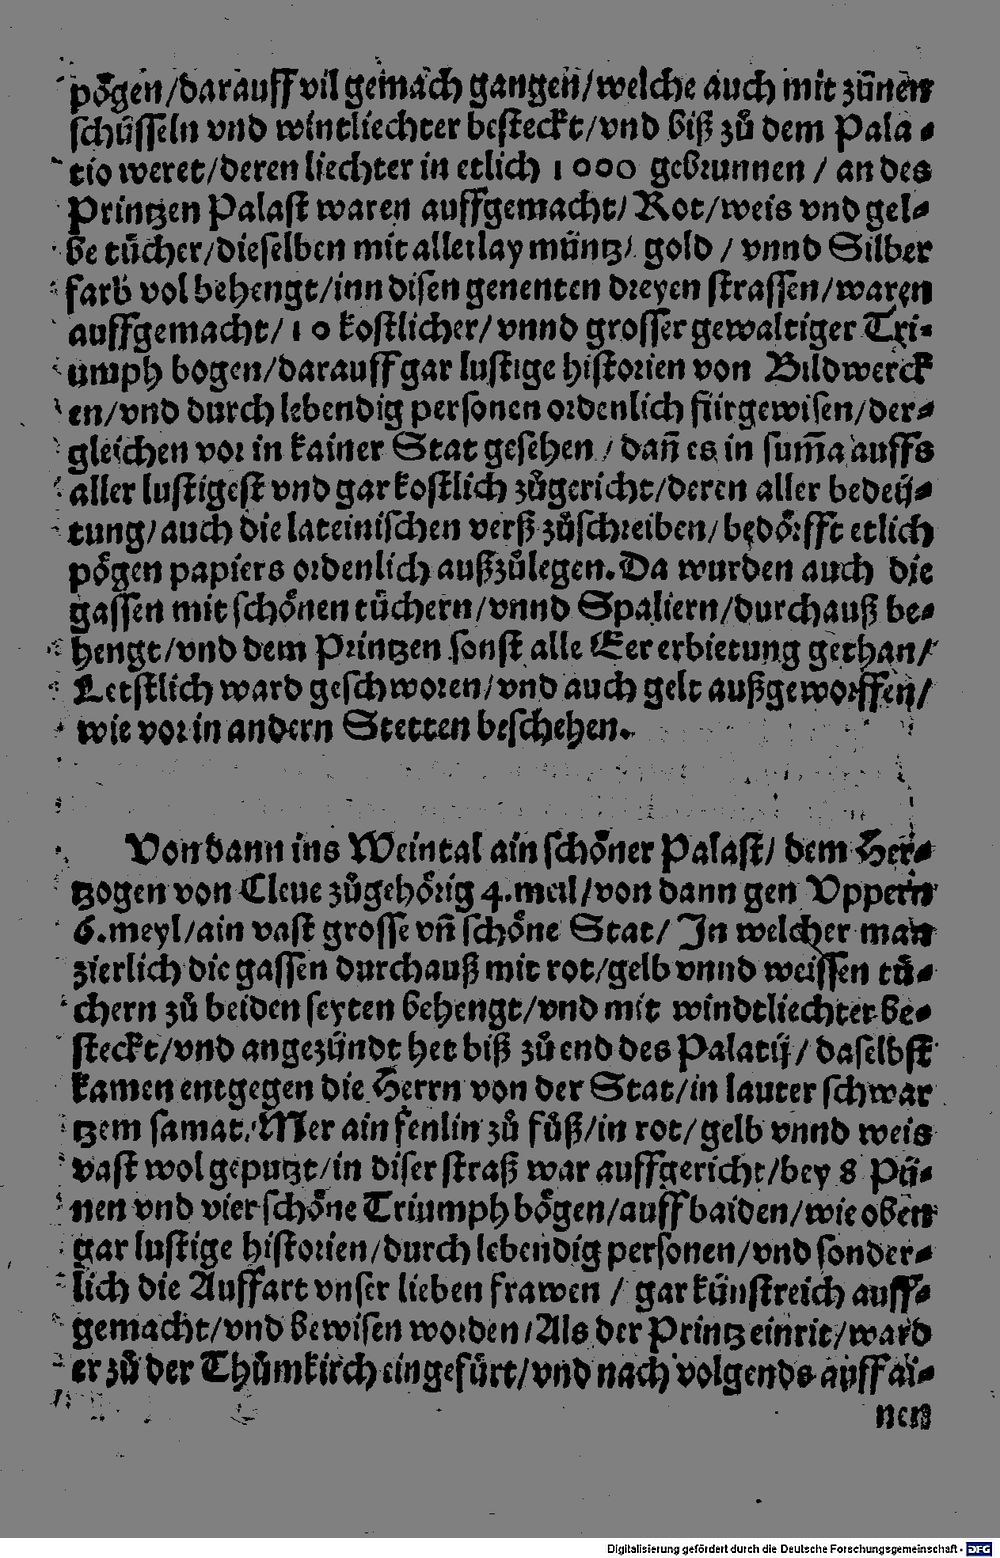 pögen/darauff vil gemäch gangen/welche auch mit zünen
schüsseln vnd wintliechter besteckt/vnd biß zů dem Pala⸗
tio weret/deren liechter in etlich 1000 gebrunnen / an des
Printzen Palast waren auffgemacht/ Rot/weis vnd gel⸗
be tücher/dieselben mit allerlay müntz/ gold / vnnd Silber
farb vol behengt/inn disen genenten dreyen strassen/waren
auffgemacht/ 10 kostlicher/ vnnd grosser gewaltiger Tri⸗
umph bogen/darauff gar lustige historien von Bildwerck
en/vnd durch lebendig personen ordenlich fürgewisen/der⸗
gleichen vor in kainer Stat gesehen / dañ es in sum̃a auffs
aller lustigest vnd gar kostlich zůgericht/deren aller bedeü⸗
tung/auch die lateinischen verß zůschreiben/bedörfft etlich
pögen papiers ordenlich außzůlegen. Da wurden auch die
gassen mit schönen tüchern/vnnd Spaliern/durchauß be⸗
hengt/vnd dem Printzen sonst alle Eer erbietung gethan/
Letstlich ward geschworen/vnd auch gelt außgeworffen/
wie vor in andern Stetten beschehen.
Von dann ins Weintal ain schöner Palast/ dem Her⸗
tzogen von Cleue zůgehörig 4. meil/von dann gen Vppern
6. meyl/ain vast grosse vñ schöne Stat/ In welcher man
zierlich die gassen durchauß mit rot/gelb vnnd weissen tü⸗
chern zů beiden seyten behengt/vnd mit windtliechter be⸗
steckt/vnd angezündt het biß zů end des Palatij/ daselbst
kamen entgegen die Herrn von der Stat/in lauter schwar
tzem samat. Mer ain fenlin zů fůß/in rot/gelb vnnd weis
vast wol geputzt/in diser straß war auffgericht/bey 8 Pü⸗
nen vnd vier schöne Triumph bögen/auff baiden/wie oben
gar lustige historien/durch lebendig personen/vnd sonder⸗
lich die Auffart vnser lieben frawen / gar künstreich auff⸗
gemacht/vnd bewisen worden/Als der Printz einrit/ward
er zů der Thůmkirch eingefürt/vnd nach volgends auff ai⸗
nen
Digitalisierung gefördert durch die Deutsche Forschungsgemeinschaft - DFG